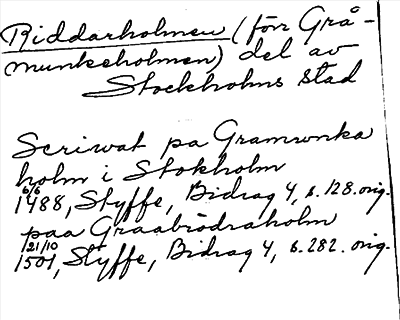 Riddarholmen (förr Grå-
munkeholmen) del av
Stockholms stad
Scriwat pa Gramwnka
holm i Stokholm
6/6
1488, Styffe, Bidrag 4, s. 128. orig.
paa Graabrödraholm
21/10
1501, Styffe, Bidrag 4, s. 282. orig.